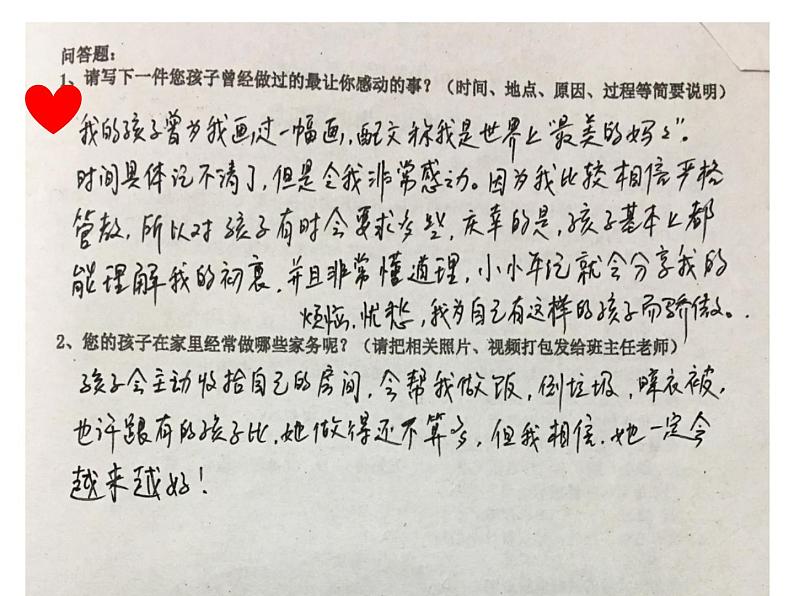 问答题：
1、请写下一件您孩子曾经做过的最让你感动的事？（时间、地点、原因、过程等简要说明）
我的孩子曾为我画过一幅画，配文称我是世界上"最美的妈妈"。
时间具体记不清了，但是令我非常感动。因为我比较相信严格
管教，所以对孩子有时会要求多些，庆幸的是，孩子基本上都
能理解我的初衷，并且非常懂道理，小小年纪就会分享我的
烦恼、忧愁，我为自己有这样的孩子而骄傲。
2、您的孩子在家里经常做哪些家务呢？（请把相关照片、视频打包发给班主任老师）
孩子会主动收拾自己的房间，会帮我做饭，倒垃圾，晒衣被，
也许跟有的孩子比，她做得还不算多，但我相信，她一定会
越来越好！